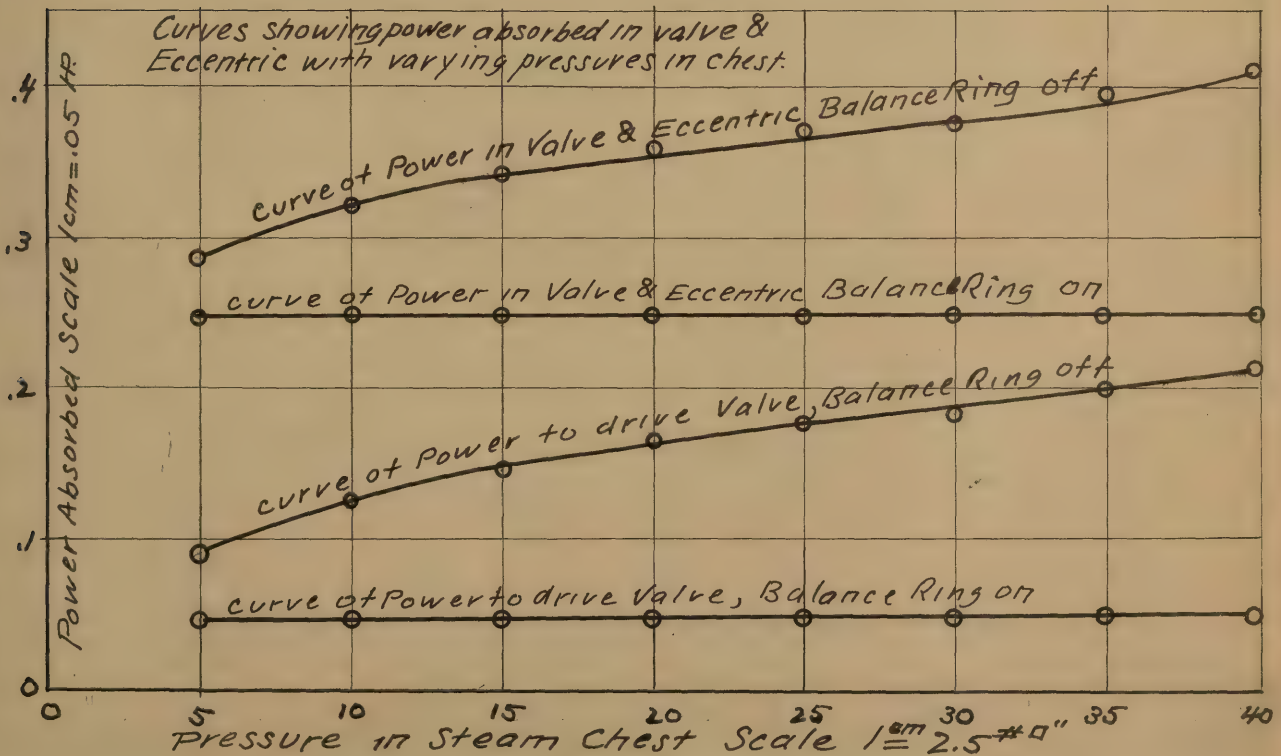 Curves showing power absorbed in valve &
Eccentric with varying pressures in chest.
.4
curve of Power in Valve & Eccentric Balance Ring off
Power Absorbed Scale 1cm=.05 HP.
.3
curve of Power in Valve & Eccentric Balance Ring on
.2
curve of Power to drive Valve, Balance Ring off
.1
curve of Power to drive Valve, Balance Ring on
0
0 5 10 15 20 25 30 35 40
Pressure in Steam Chest Scale 1cm= 2.5 #□"